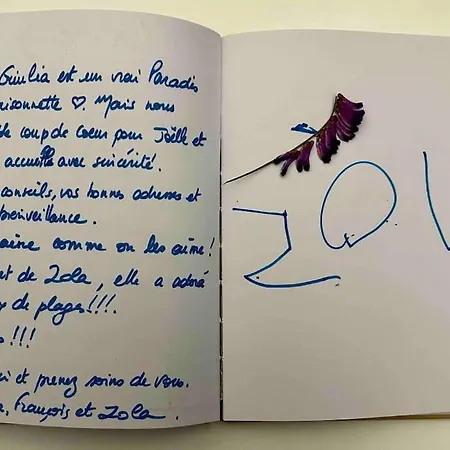 Giulia est un vrai Paradis
maisonnette ♡ Mais nous
coup de coeur pour Joëlle et
accueilli avec sincérité.
conseils, vos bonnes adresses et
bienveillance.
aime comme on les aime!
et de Zola, elle a adoré
de plages!!!.
!!!
et prenez soins de vous.
François et Zola.
ZOL